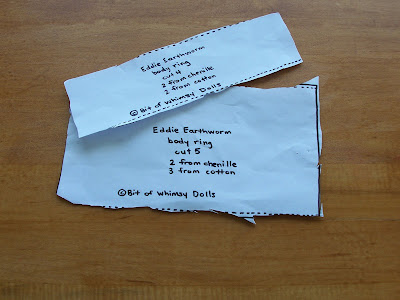 Eddie Earthworm
body ring
cut 4
2 from chenille
2 from cotton
©Bit of Whimsy Dolls
Eddie Earthworm
body ring
cut 5
2 from chenille
3 from cotton
©Bit of Whimsy Dolls